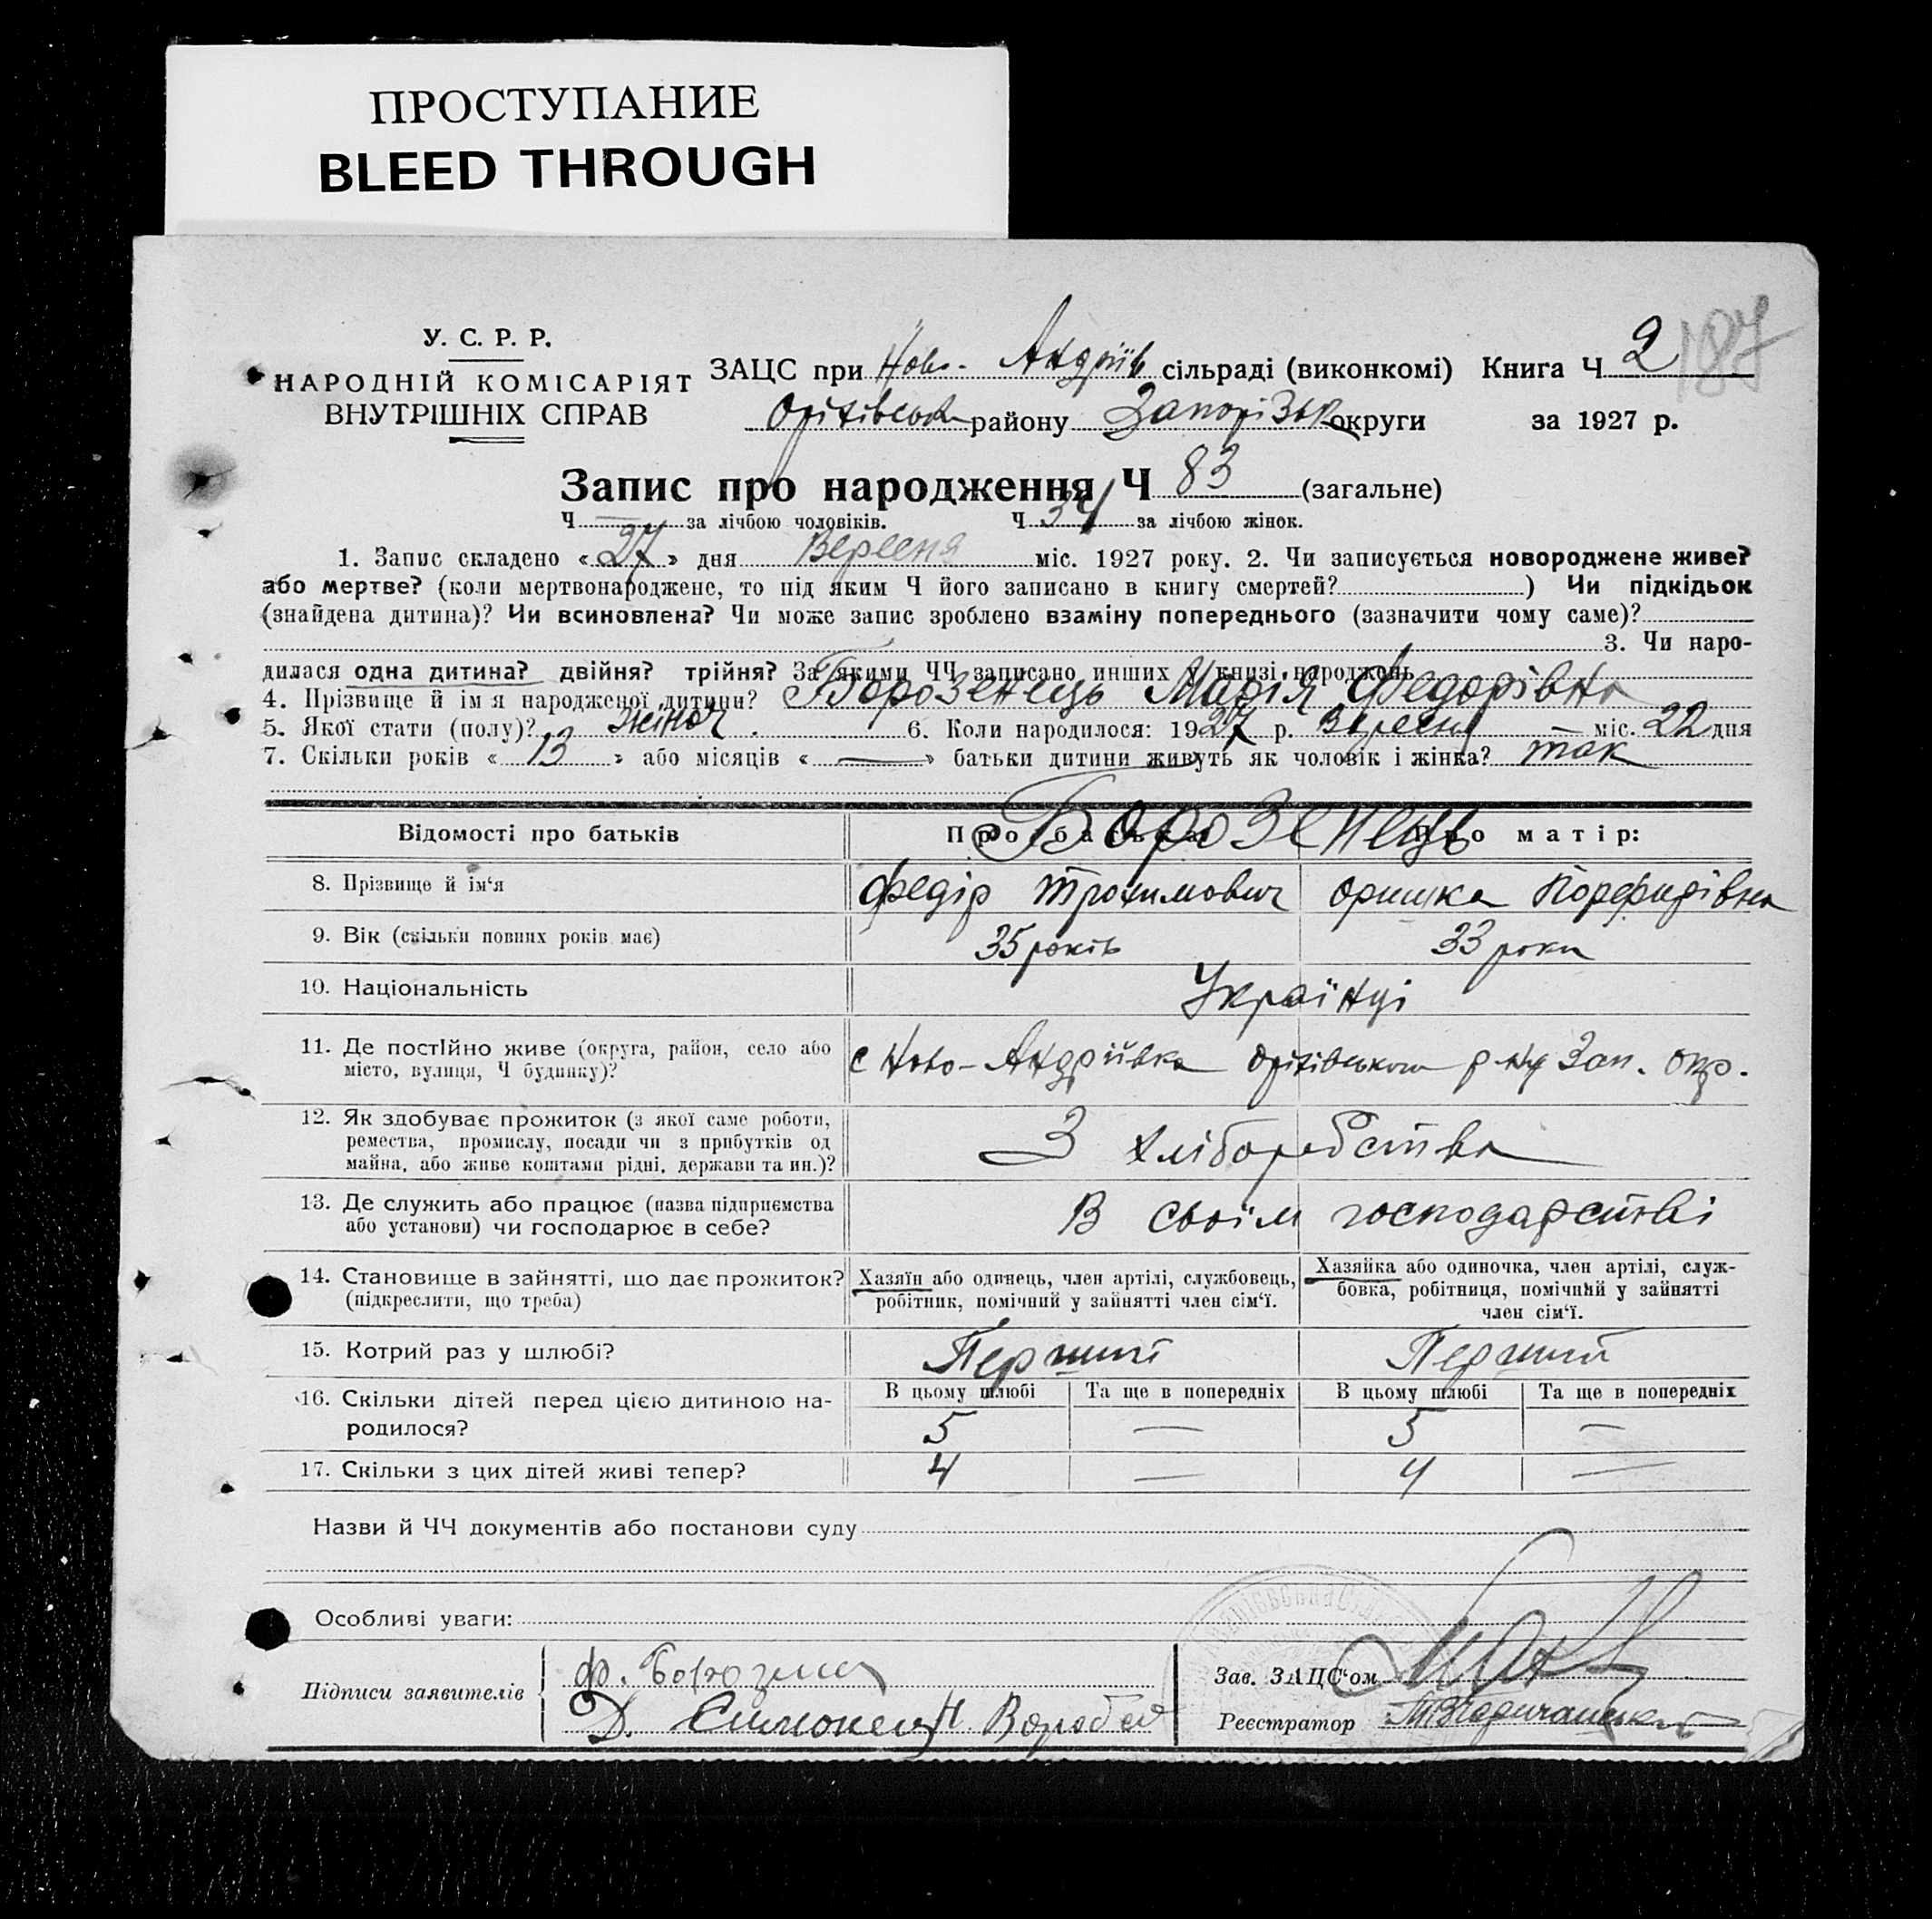 ПРОСТУПАНИЕ
BLEED THROUGH
187
У. С. Р. Р.
НАРОДНІЙ КОМІСАРІЯТ
ВНУТРІШНІХ СПРАВ
ЗАЦС при Ново- Андріїв сільраді (виконкомі) Книга Ч 2
Оріхівськ району Запорізьк округи за 1927 р.
Запис про народження Ч 83 (загальне)
Ч — за лічбою чоловіків. Ч 34 за лічбою жінок.
1. Запис складено «27» дня Вересня міс. 1927 року. 2. Чи записується новороджене живе?
або мертве? (коли мертвонароджене, то під яким Ч його записано в книгу смертей? ) Чи підкідьок
(знайдена дитина)? Чи всиновлена? Чи може запис зроблено взаміну попереднього (зазначити чому саме)?
3. Чи наро-
дилася одна дитина? двійня? трійня? За якими ЧЧ записано инших у книзі народжень
4. Прізвище й ім я народженої дитини? Борозенець Марія Федорівна
5. Якої стати (полу)? жіноч. 6. Коли народилося: 1927 р. Вересня — міс. 22 дня
7. Скільки років « 13 » або місяців « — » батьки дитини живуть як чоловік і жінка? так
Відомості про батьків Про батька: Про матір:
Борозенець
8. Прізвище й ім‘я Федір Трохимович Оришка Порфирівна
9. Вік (скільки повних років має) 35 років 33 роки
10. Національність Українці
11. Де постійно живе (округа, район, село або с Ново-Андріївка Оріхівського р-ну Зап. окр.
місто, вулиця, Ч будинку)?
12. Як здобуває прожиток (з якої саме роботи,
ремества, промислу, посади чи з прибутків од З хліборобства
майна, або живе коштами рідні, держави та ин.)?
13. Де служить або працює (назва підприємства В своїм господарстві
або установи) чи господарює в себе?
14. Становище в зайнятті, що дає прожиток? Хазяїн або одинець, член артілі, службовець, Хазяйка або одиночка, член артілі, служ-
(підкреслити, що треба) робітник, помічний у зайнятті член сім‘ї. бовка, робітниця, помічний у зайнятті
член сім‘ї.
15. Котрий раз у шлюбі? Перший Перший
16. Скільки дітей перед цією дитиною на- В цьому шлюбі Та ще в попередніх В цьому шлюбі Та ще в попередніх
родилося? 5 — 5 —
17. Скільки з цих дітей живі тепер? 4 — 4 —
Назви й ЧЧ документів або постанови суду
Особливі уваги:
Підписи заявителів Ф.
Д.
Зав. ЗАЦС‘ом
Реєстратор